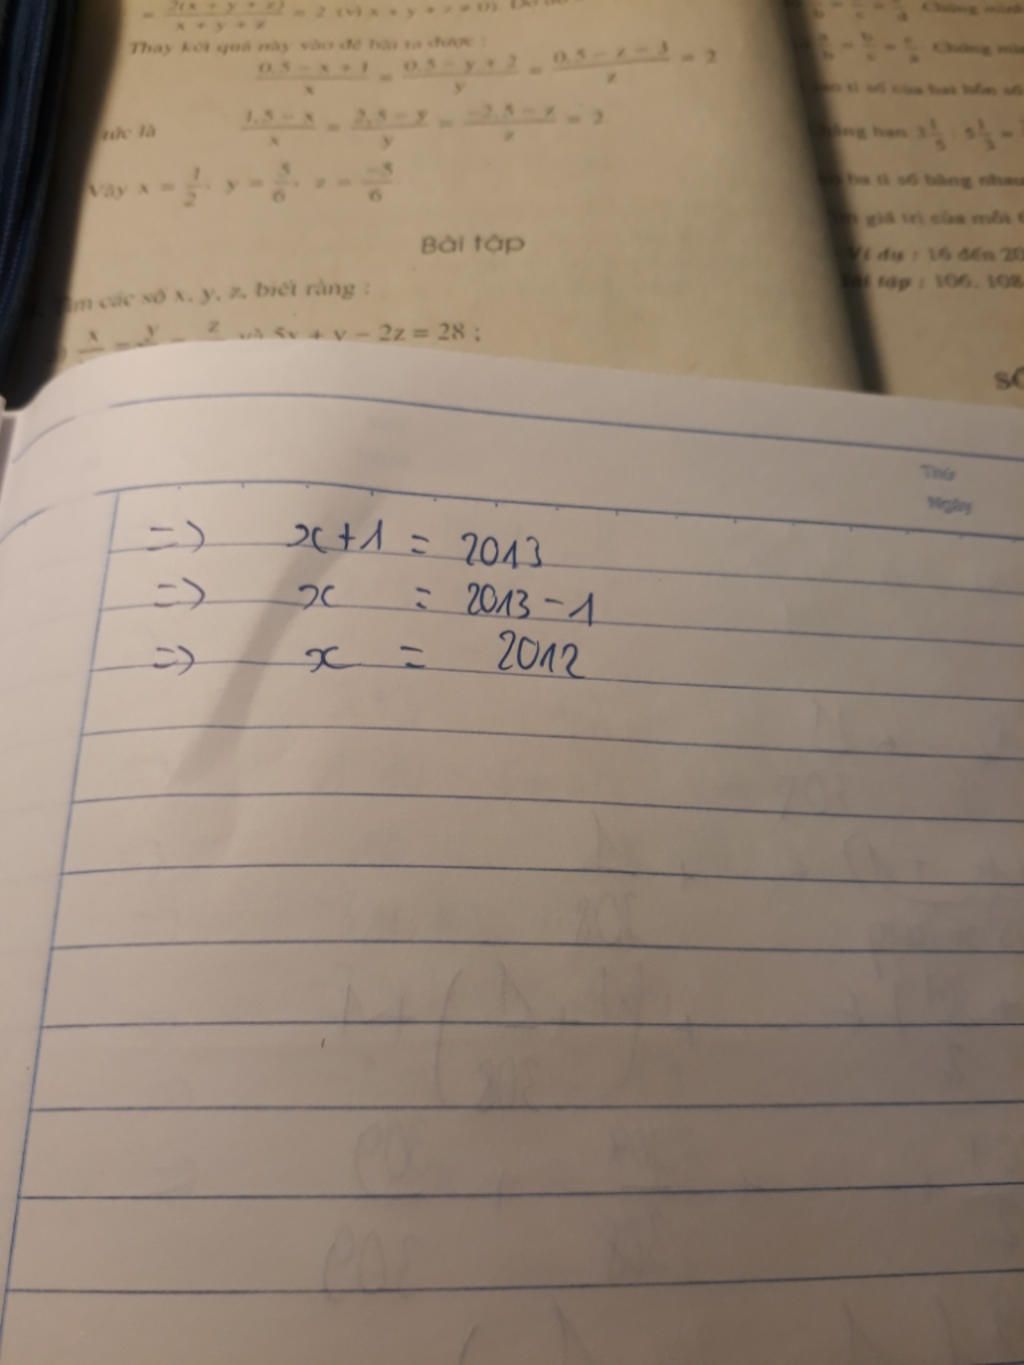 = 2(x + y + z) / x + y + z = 2 (vì x + y + z ≠ 0).
Thay kết quả này vào đề bài ta được :
0,5 − x + 1 / x = 0,5 − y + 2 / y = 0,5 − z − 3 / z = 2
tức là 1,5 − x / x = 2,5 − y / y = −2,5 − z / z = 2
Vậy x = 1/2, y = 5/6, z = −5/6
Bài tập
Tìm các số x, y, z, biết rằng :
x = y = z và 5x + y − 2z = 28 ;
Chứng minh
a/b = b/c = c/a. Chứng min
tỉ số của hai hỗn số
chẳng hạn 3 1/5 : 5 1/3 =
ba tỉ số bằng nhau
giá trị của mỗi t
Ví dụ : 16 đến 20
Bài tập : 106, 108
SỐ
Thứ
Ngày
=> x+1 = 2013
=> x = 2013 - 1
=> x = 2012